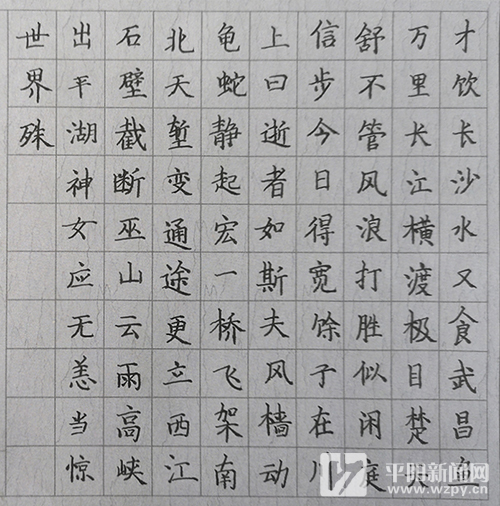 才饮长沙水又食武昌鱼
万里长江横渡极目楚天
舒不管风浪打胜似闲庭
信步今日得宽馀子在川
上曰逝者如斯夫风樯动
龟蛇静起宏一桥飞架南
北天堑变通途更立西江
石壁截断巫山云雨高峡
出平湖神女应无恙当惊
世界殊
平阳新闻网
www.wzpy.cn